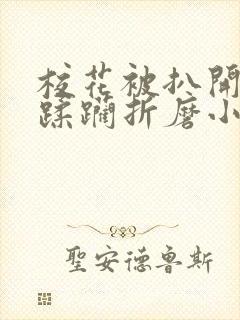 校花被扒開
蹂躪折磨小
聖安德魯斯